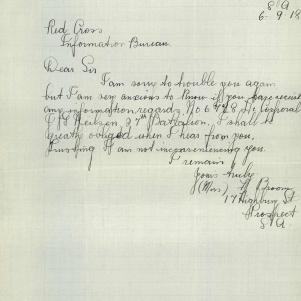 S A
6-9-18
Red Cross
Information Bureau
Dear Sir
I am sorry to trouble you again
but I am very anxious to know if you have received
any information regards No 6428 Corporal
Neilsen 27th Battalion. I shall be
greatly obliged when I hear from you.
Trusting I am not inconveniencing you.
I remain
yours truly
(Mrs) Broom
17 Highbury St
Prospect
S A